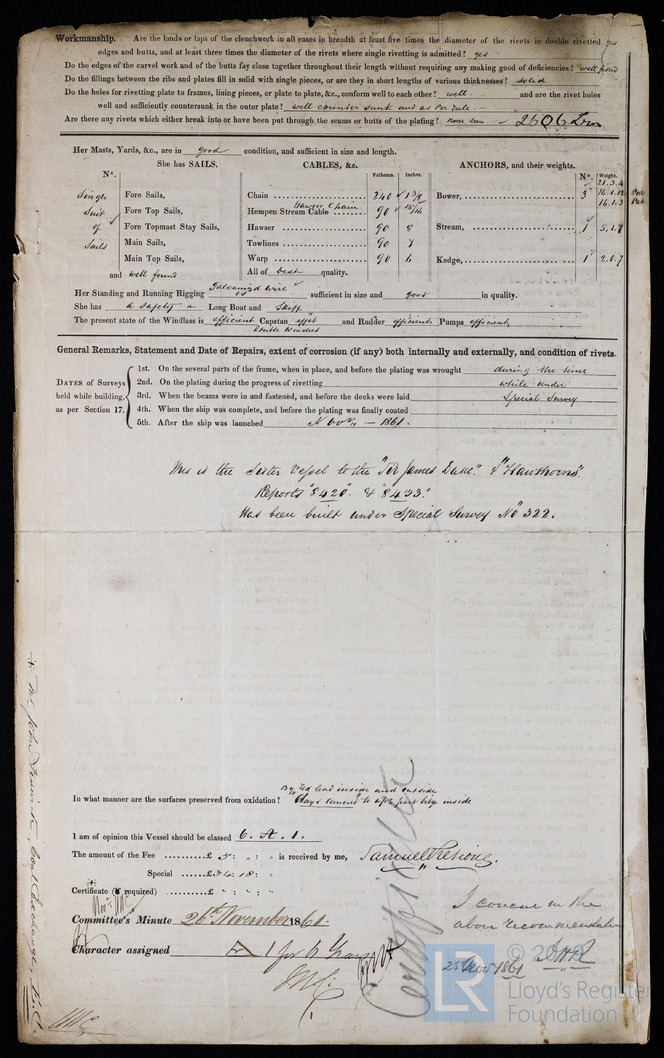 Workmanship. Are the lands or laps of the clenchwork in all cases in breadth at least five times the diameter of the rivets in double rivetted yes
edges and butts, and at least three times the diameter of the rivets where single rivetting is admitted? yes
Do the edges of the carvel work and of the butts fay close together throughout their length without requiring any making good of deficiencies? well fitted
Do the fillings between the ribs and plates fill in solid with single pieces, or are they in short lengths of various thicknesses? solid
Do the holes for rivetting plate to frames, lining pieces, or plate to plate, &c., conform well to each other? well and are the rivet holes
well and sufficiently countersunk in the outer plate? well counter sunk and as Per Rule
Are there any rivets which either break into or have been put through the seams or butts of the plating? None seen 2606 Iron
Her Masts, Yards, &c., are in good condition, and sufficient in size and length.
She has SAILS. CABLES, &c. ANCHORS, and their weights.
N°. Fathoms. Inches. N°. Weight.
21.3.4
Single Fore Sails, Chain 240 1 3/8 Bower, 3 16.1.12
16.1.3
Suit Fore Top Sails, Hawser Chain Hempen Stream Cable 90 15/16
of Fore Topmast Stay Sails, Hawser 90 8 Stream, 1 5.1.7
Sails Main Sails, Towlines 90 7
Main Top Sails, Warp 90 6 Kedge, 1 2.0.7
and well found All of best quality.
Her Standing and Running Rigging Galvanized wire sufficient in size and good in quality.
She has a Safety a Long Boat and Skiff
The present state of the Windlass is efficient Capstan effet and Rudder efficient Pumps efficient
Double Winches
General Remarks, Statement and Date of Repairs, extent of corrosion (if any) both internally and externally, and condition of rivets.
DATES of Surveys held while building, as per Section 17.
1st. On the several parts of the frame, when in place, and before the plating was wrought during the time
2nd. On the plating during the progress of rivetting while under
3rd. When the beams were in and fastened, and before the decks were laid Special Survey
4th. When the ship was complete, and before the plating was finally coated
5th. After the ship was launched Nov - 1861.
This is the Sister Vessel to the "Sir James Duke" & "Hawthorns"
Reports "8420" & "8433"
Has been built under Special Survey No 322.
By red lead inside and outside
In what manner are the surfaces preserved from oxidation? Days cement to upr part bilge inside
I am of opinion this Vessel should be classed 6. A. 1.
The amount of the Fee £ 5 : " : " is received by me, Samuel Presious
Special £34 : 18 :
Certificate (if required) £ " : " : "
Committee's Minute 26th November 1861.
Character assigned A 1 for 6 Years
I concur in the
above recommendation
25 Nov 1861
© 2020
Lloyd's Register
Foundation
LR